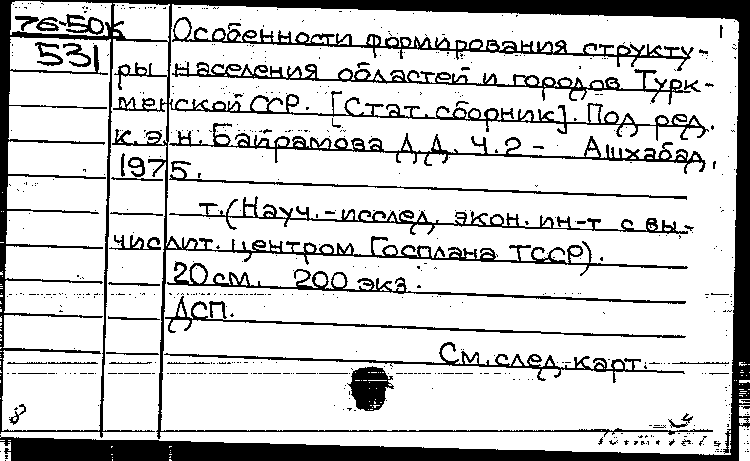 76-50К
531
1
Особенности формирования структу-
ры населения областей и городов Турк-
менской ССР. [Стат. сборник]. Под ред.
к.э.н. Байрамова Д.Д. Ч.2 - Ашхабад,
1975.
т. (Науч.-исслед. экон. ин-т с вы-
числит. центром Госплана ТССР).
20 см. 200 экз.
ДСП.
См. след. карт.
8